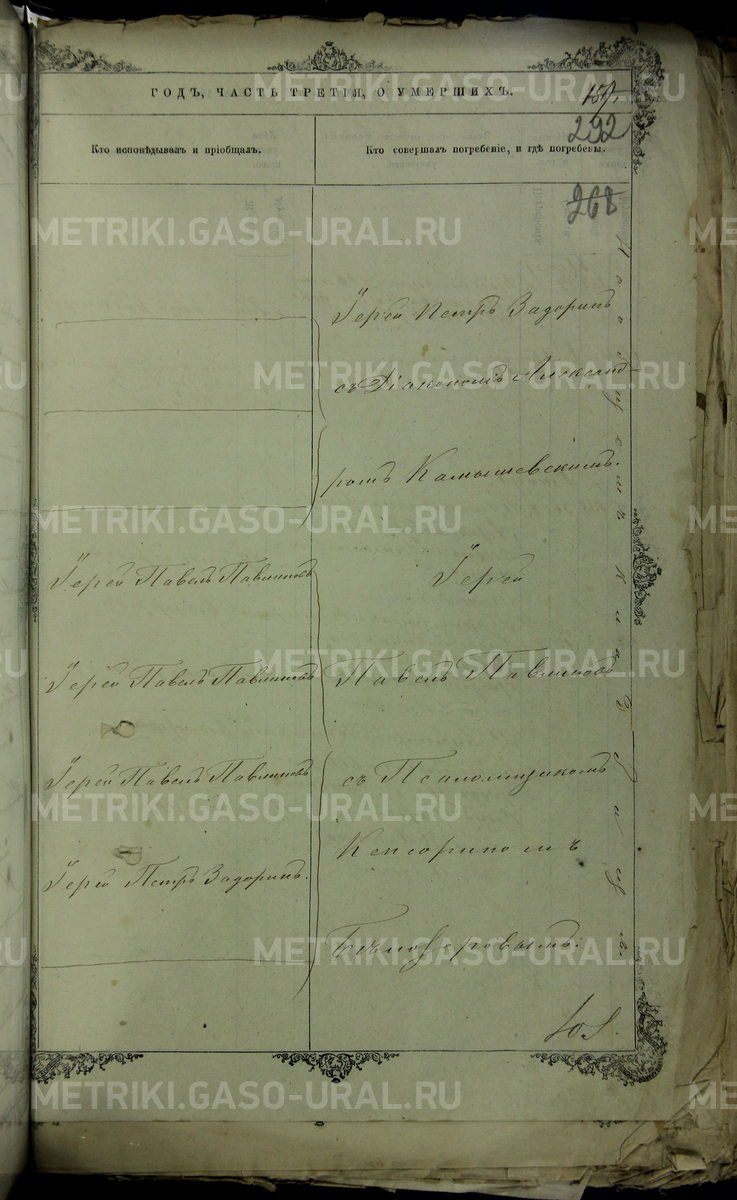 ГОДЪ, ЧАСТЬ ТРЕТІЯ, О УМЕРШИХЪ.
157.
292
268
Кто исповѣдывалъ и пріобщалъ.
Кто совершалъ погребеніе, и гдѣ погребены.
Іерей Петръ Задоринъ
съ Діакономъ Александ-
ромъ Камышевскимъ.
Іерей Павелъ Павлиновъ
Іерей Павелъ Павлиновъ
Іерей Павелъ Павлиновъ
Іерей Петръ Задоринъ.
Іерей
Павелъ Павлиновъ
съ Псаломщикомъ
Кенсориномъ
Бѣлозеровымъ.
METRIKI.GASO-URAL.RU